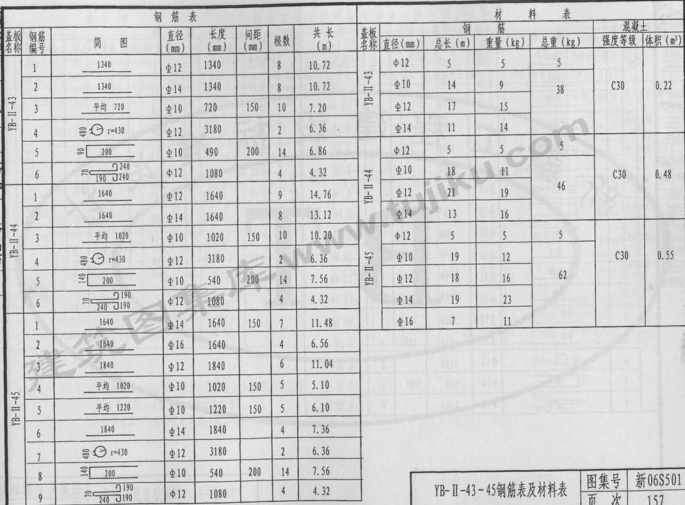 钢 筋 表
盖板名称 钢筋编号 简 图 直径(mm) 长度(mm) 间距(mm) 根数 共 长(m)
YB-Ⅱ-43
1 1340 Φ12 1340 8 10.72
2 1340 Φ14 1340 8 10.72
3 平均 720 Φ10 720 150 10 7.20
4 480 r=430 Φ12 3180 2 6.36
5 90 200 Φ10 490 200 14 6.86
6 70 240 190 240 Φ12 1080 4 4.32
YB-Ⅱ-44
1 1640 Φ12 1640 9 14.76
2 1640 Φ14 1640 8 13.12
3 平均 1020 Φ10 1020 150 10 10.20
4 480 r=430 Φ12 3180 2 6.36
5 140 200 Φ10 540 200 14 7.56
6 70 190 240 190 Φ12 1080 4 4.32
YB-Ⅱ-45
1 1640 Φ14 1640 150 7 11.48
2 1640 Φ16 1640 4 6.56
3 1840 Φ12 1840 6 11.04
4 平均 1020 Φ10 1020 150 5 5.10
5 平均 1220 Φ10 1220 150 5 6.10
6 1840 Φ14 1840 4 7.36
7 480 r=430 Φ12 3180 2 6.36
8 140 200 Φ10 540 200 14 7.56
9 70 190 240 190 Φ12 1080 4 4.32
材 料 表
盖板名称 钢 筋 混凝土
直径(mm) 总长(m) 重量(kg) 总重(kg) 强度等级 体积(m³)
YB-Ⅱ-43
Φ12 5 5 5 C30 0.22
Φ10 14 9 38
Φ12 17 15
Φ14 11 14
YB-Ⅱ-44
Φ12 5 5 5 C30 0.48
Φ10 18 11 46
Φ12 21 19
Φ14 13 16
YB-Ⅱ-45
Φ12 5 5 5 C30 0.55
Φ10 19 12 62
Φ12 18 16
Φ14 19 23
Φ16 7 11
YB-Ⅱ-43~45钢筋表及材料表 图集号 新06S501
页 次 157
建筑图集库 www.tujiku.com